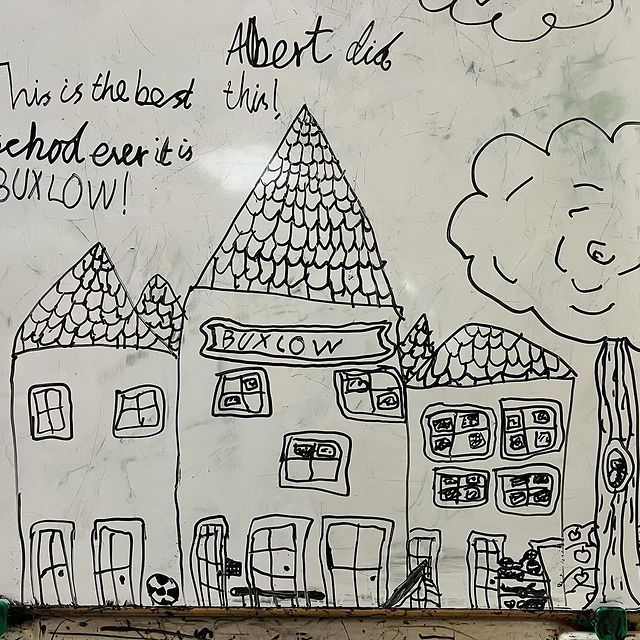 This is the best
school ever it is
BUXLOW!
Albert did
this!
BUXLOW